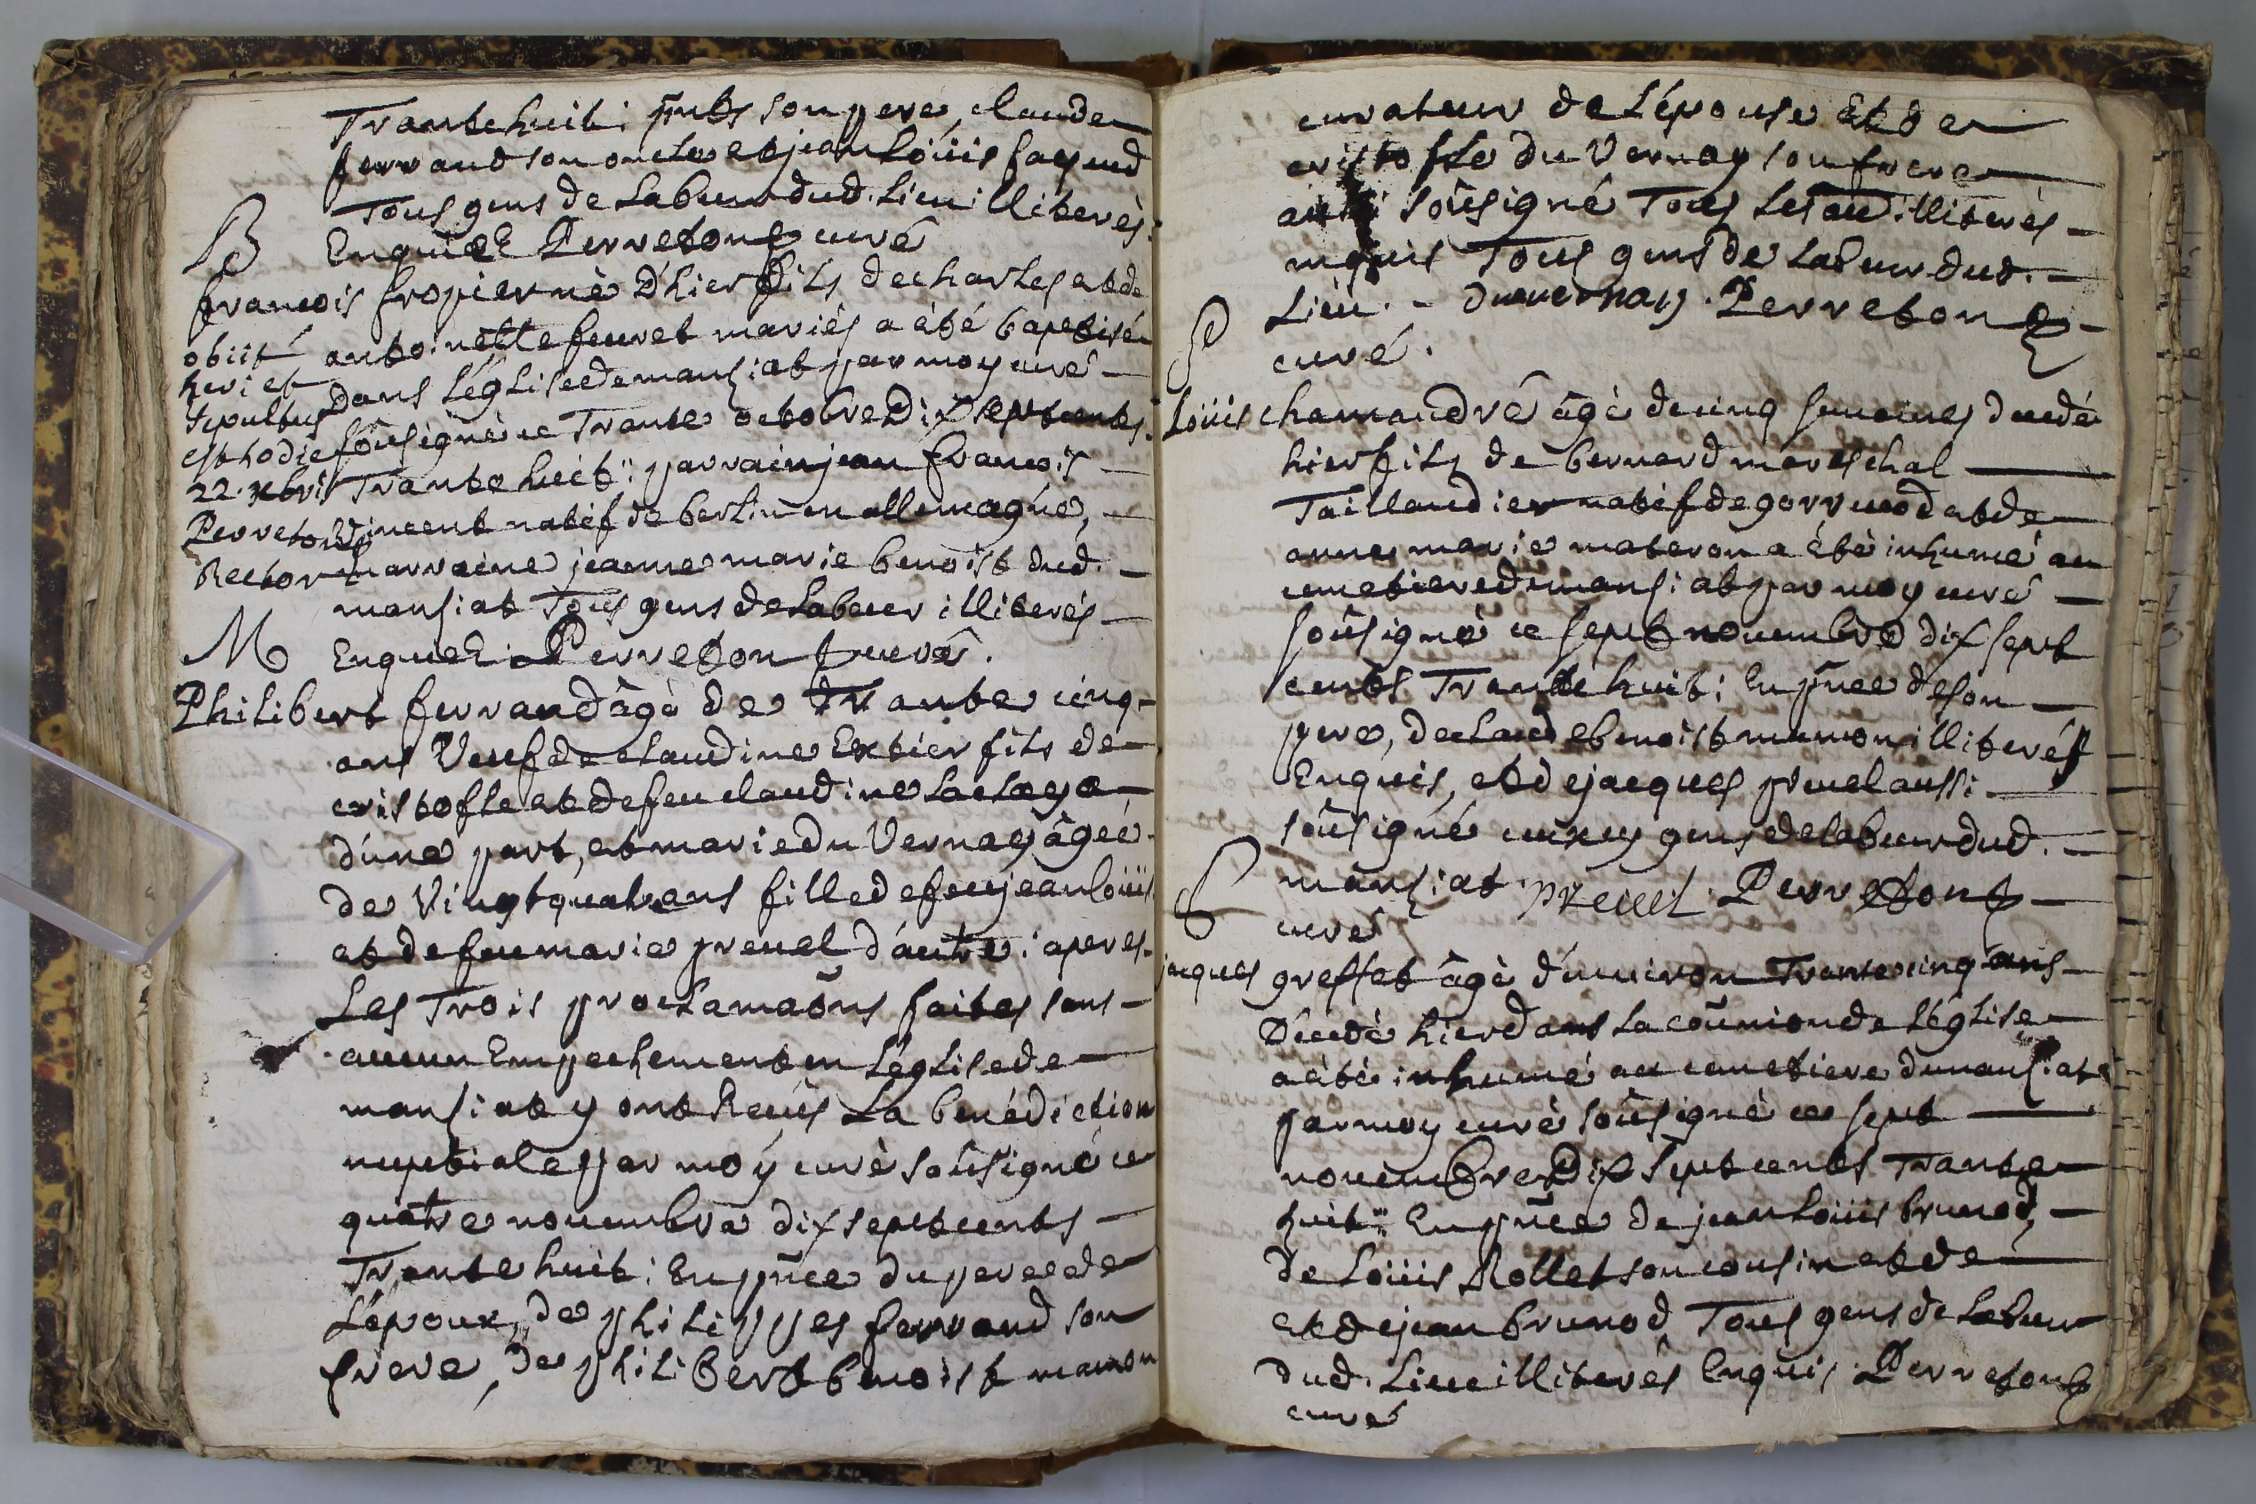 Trante huit: pnts son pere, claude
ferrand son oncle et jean loüis
Tous gens de labeur dud. lieu illiterés
Enquis Perreton curé
B
francois fropier né d'hier fils de charles et de
antoinette feuret mariés a été baptisé
dans léglise de mansiat par moy curé
soûsigné ce Trante octobre Dix sept cents
Trante huit: parrain jean francois
vincent natif de berlin en allemagne,
marraine jeanne marie benoist dud.
mansiat Tous gens de labeur illiterés
Enquis Perreton curé.
obiit
heri et
sepultus
est hodie
22. xbris
Perreton
Rector
M
Philibert ferrand âgé de Trante cinq
ans Veuf de claudine Extier fils de
cristofle et de feu claudine
d'une part, et marie du Vernay âgeé
de Vingt quatre ans fille de feu jean loüis
et de feu marie preuel d'autre: apres
Les Trois proclamaõns faites sans
aucun Empechement en Léglise de
mansiat y ont Reçus La benédiction
nuptiale par moy curé soûsigné ce
quatre novembre dix sept cents
Trante huit: En pñce du pere de
L'époux, de philippes ferrand son
frere, de philibert benoist mamon
curateur de L'épouse et de
cristofle du Vernay son frere
aussi soûsigné Tous les au illiterés
Tous gens de labeur dud.
Lieu. - duvernay. Perreton
curé.
S
Loüis chamandré âgé de cinq semaines decedé
hier fils de bernard mareschal
Taillandier natif de gorrevod et de
anne marie materon a été inhumé au
cimetiere de mansiat par moy curé
soûsigné ce sept novembre dix sept
cents Trante huit: En pñce de son
pere, de claude benoist mamon illiterés
Enquis, et de jacques preuel aussi
soûsigné ceux cy gens de labeur dud.
mansiat. preuel Perreton
curé
S
jacques greffet âgé d'environ Trante cinq ans
Décédé hier dans la coñunion de Léglise
a été inhumé au cimetiere dumansiat
par moy curé soûsigné ce sept
novembre Dix Sept cents Trante
huit: En pñce de jean loüis brunod,
de Loüis Rollet son cousin et de
et de jean brunod Tous gens de labeur
dud. Lieu illiterés Enquis. Perreton
curé